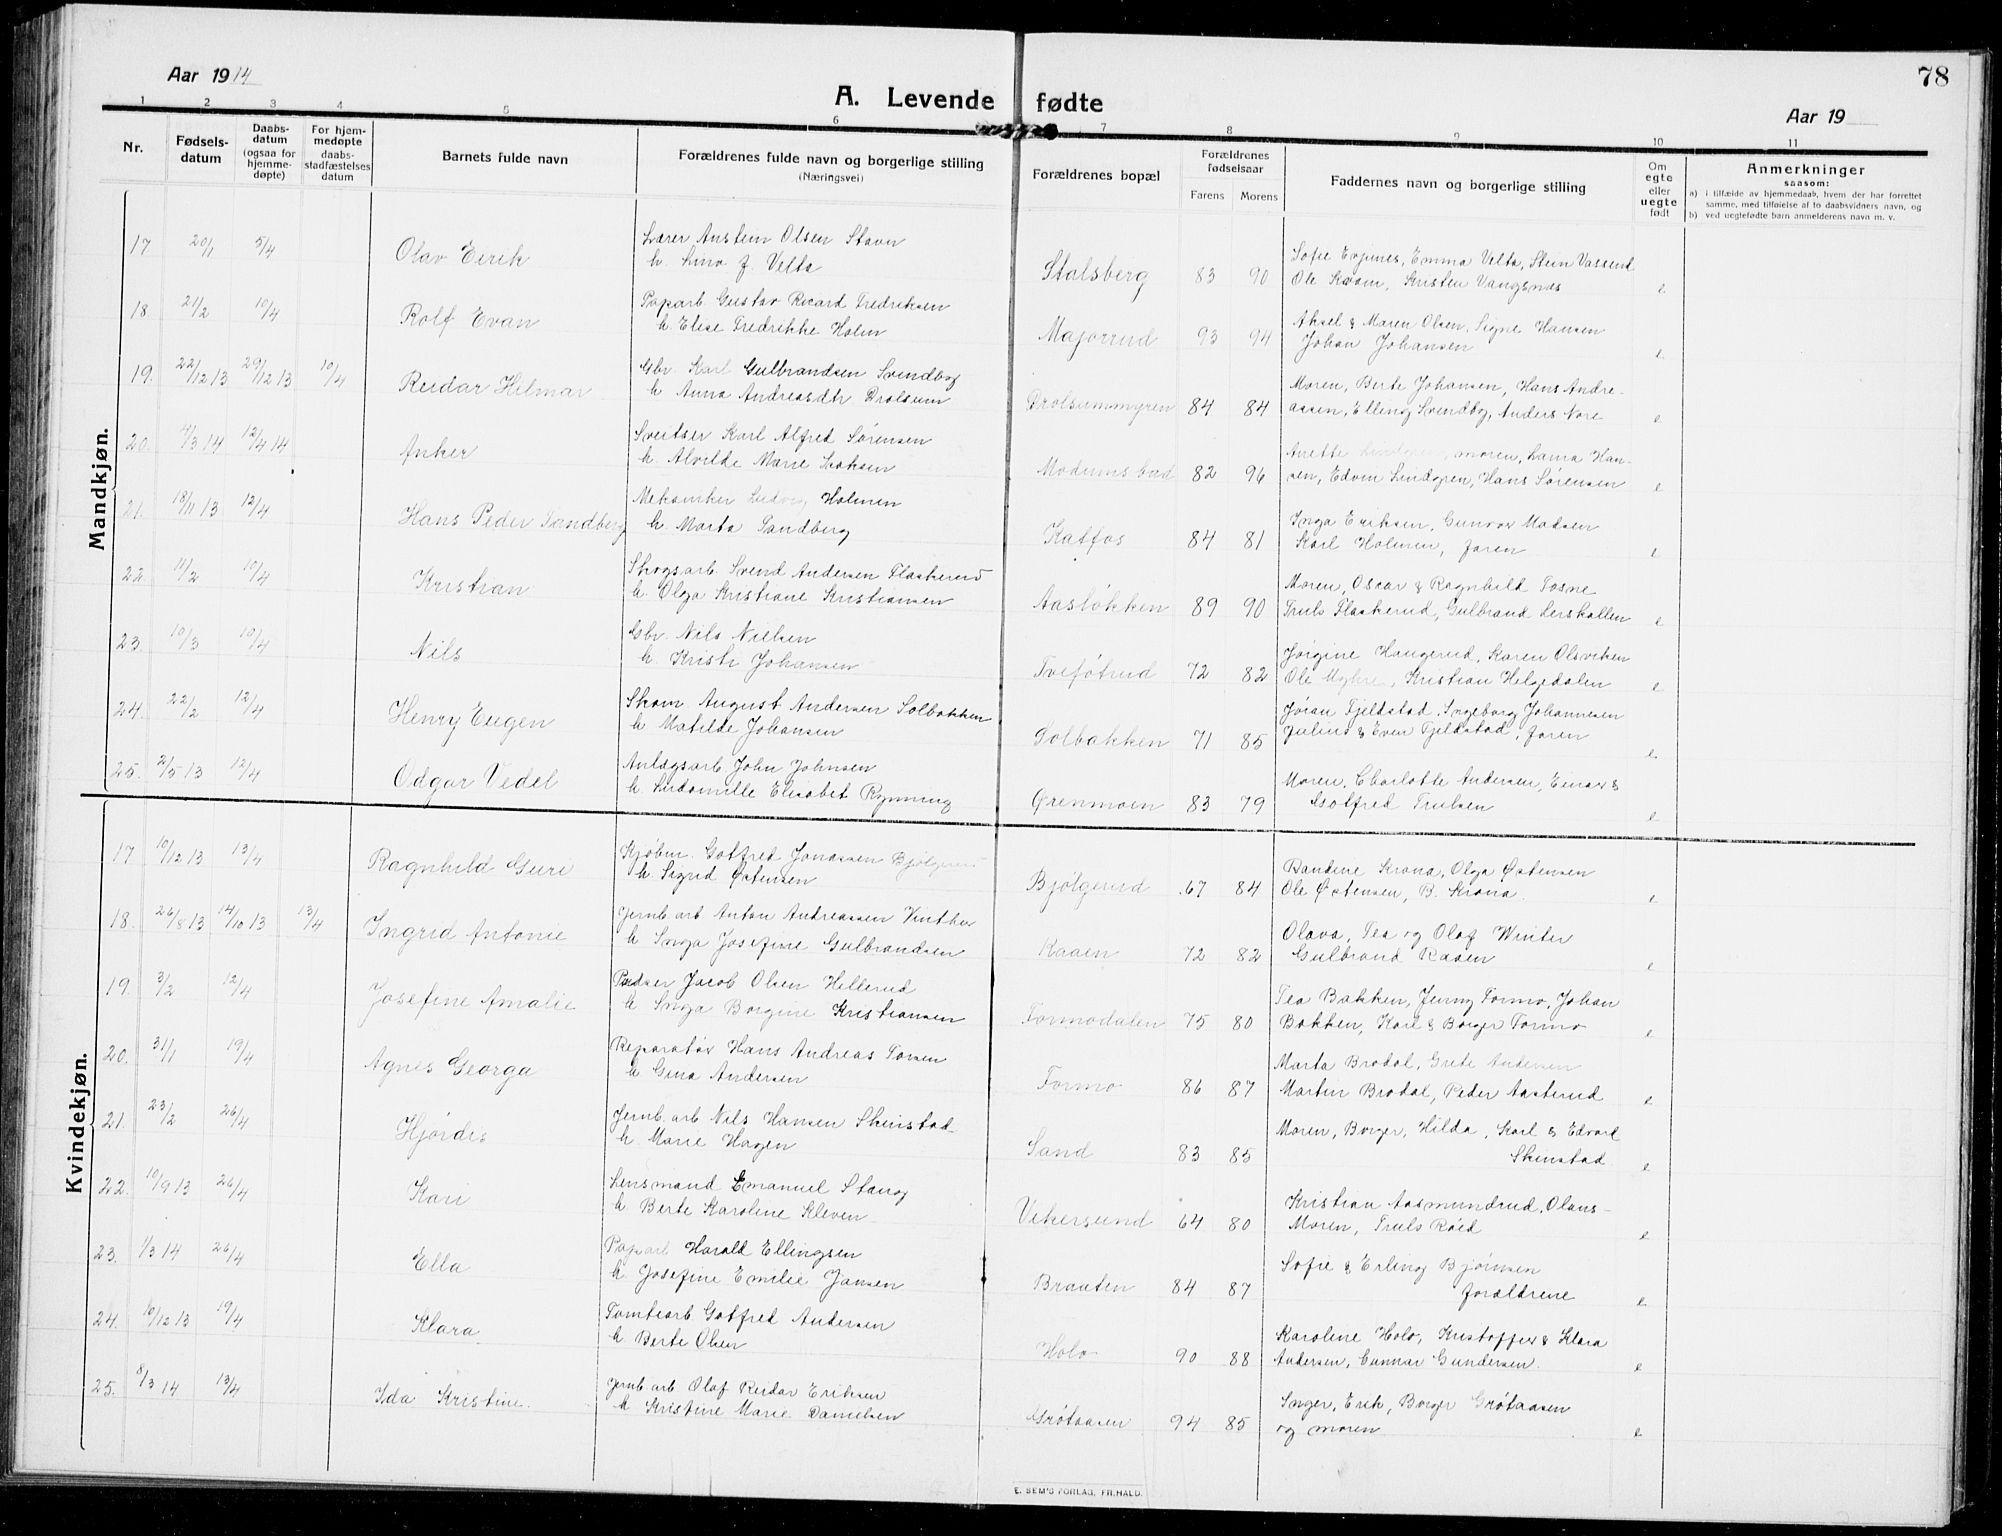 Aar 1914
78
A. Levende fødte
Aar 19
1 2 3 4 5 6 7 8 9 10 11
Nr.
Fødsels-
datum
Daabs-
datum
(ogsaa for
hjemme-
døpte)
For hjem-
medøpte
daabs-
stadfæstelses
datum
Barnets fulde navn
Forældrenes fulde navn og borgerlige stilling
(Næringsvei)
Forældrenes bopæl
Forældrenes
fødselsaar
Farens Morens
Faddernes navn og borgerlige stilling
Om
egte
eller
uegte
født
Anmerkninger
saasom:
a) i tilfælde av hjemmedaab, hvem der har forrettet
samme, med tilføielse af to daabsvidners navn, og
b) ved uegtefødte barn anmelderens navn m. v.
Mandkjøn.
17 20/1 5/4 Olav Eirik Lærer Anstein Olsen Stavn Stalsberg 83 90 Sofie Evjenes, Emma Velta, Stein Vassend e
h. Lina f. Velta Ole Kvam, Kristen Vangsnes
18 21/2 10/4 Rolf Evan Paparb Gustav Ricard Fredriksen Majorrud 93 94 Aksel & Maren Olsen, Signe Hansen e
h. Elise Fredrikke Holm Johan Johansen
19. 22/12 13 29/12 13 10/4 Reidar Hilmar Gbr. Karl Gulbrandsen Svendby Drolsummyren 84 84 Moren, Berte Johansen, Hans Andre- e
h. Anna Andreasdtr Drolsum assen, Elling Svendby, Anders Nore
20. 4/3 14 12/4 14 Anker Sveitser Karl Alfred Sørensen Modums bad 82 96 Anette Lindgren, moren, Laura Han- e
h. Alvilde Marie Isaksen sen, Edvin Lindgren, Hans Sørensen
21. 18/11 13 12/4 Hans Peder Sandberg Mekaniker Ludvig Holmen Katfos 84 81 Inga Eriksen, Gunvor Madsen e
h. Marta Sandberg Karl Holmen, faren
22. 11/2 10/4 Kristian Skogsarb. Svend Andersen Flaskerud Aasløkken 89 90 Moren, Oscar & Ragnhild Fosne e
h. Olga Kristiane Kristiansen Truls Flaskerud, Gulbrand Lerskallen
23. 10/3 10/4 Nils Gbr. Nils Nielsen Tveføtrud 72 82 Jørgine Haugerud, Karen Olsviken e
h. Kristi Johansen Ole Myhre, Kristian Helgedalen
24. 22/2 12/4 Henry Eugen Skom. August Andersen Solbakken Solbakken 71 85 Jøran Fjeldstad, Ingeborg Johannesen e
h. Matilde Johansen Julius & Even Fjeldstad, faren
25. 2/5 13 12/4 Odgar Vedel Anlægsarb. John Johnsen Ørenmoen 83 79 Moren, Charlotte Andersen, Einar & e
h. Ludomille Elisabet Rynning Gotfred Trulsen
Kvindekjøn.
17 10/12 13 13/4 Ragnhild Guri Kjøbm. Gotfred Jonassen Bjølgerud Bjølgerud 67 84 Randine Krona, Olga Østensen e
h. Sigrid Østensen Ole Østensen, B. Krona.
18. 26/8 13 14/10 13 13/4 Ingrid Antonie Jernb.arb Anton Andreassen Vinther Kaaen 72 82 Olava, Tea og Olaf Winter e
h Inga Josefine Gulbrandsen Gulbrand Kaaen
19. 3/2 12/4 Josefine Amalie Pudser Jacob Olsen Hellerud Formodalen 75 80 Tea Bakken, Jenny Formo, Johan e
h Inga Borgine Kristiansen Bakken, Karl & Borger Formo
20. 31/1 19/4 Agnes Georga Reparatør Hans Andreas Torsen Formo 86 87 Marta Brodal, Grete Andersen e
h Gina Andersen Martin Brodal, Peder Aasterud
21. 23/2 26/4 Hjørdis Jernb.arb Nils Hansen Skinstad Sand 83 85 Moren, Borger, Hilda, Karl & Edvard e
h. Marie Hagen Skinstad
22. 10/9 13 26/4 Kari Lensmand Emanuel Stang Vikersund 64 80 Kristian Aasmundrud, Olaus- e
h. Berte Karoline Kleven Moren, Truls Røed
23. 1/3 14 26/4 Ella Paparb Harald Ellingsen Braaten 84 87 Sofie & Erling Bjørnsen e
h. Josefine Emilie Jansen forældrene
24. 16/12 13 19/4 Klara Tomtearb Gotfred Andersen Holo 90 88 Karoline Holo, Kristoffer & Klara e
h Berte Olsen Andersen, Gunnar Gundersen.
25. 8/3 14 13/4 Ida Kristine. Jernb.arb Olaf Reidar Eriksen Grøtaasen 94 85 Inger, Erik, Borger Grøtaasen e
h Kristine Marie Danielsen og moren
E. SEM'S FORLAG, FR.HALD.